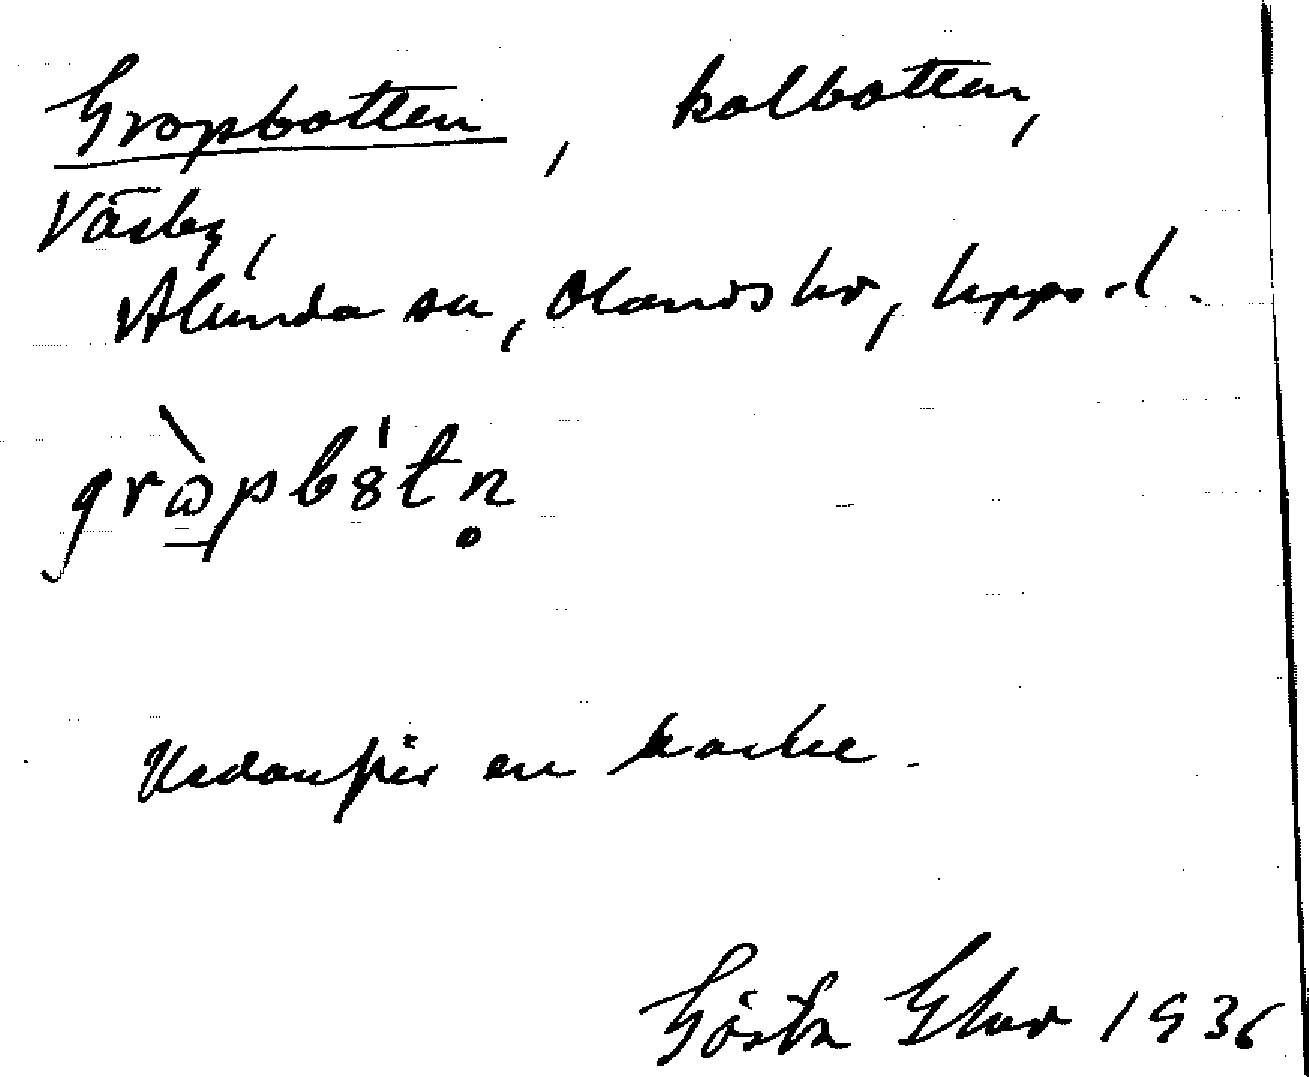 Gropbotten, kolbotten,
Väsby,
Alunda sn, Olands hd, Upps. l.
grɷ̀pbȣtn̥
Nedanför en backe.
Gösta 1936